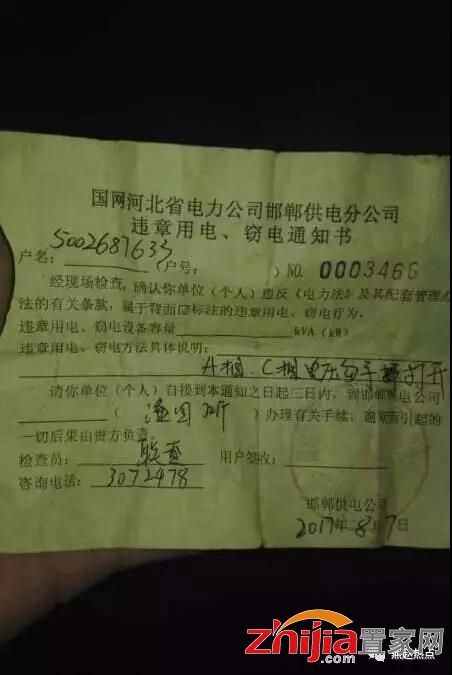 国网河北省电力公司邯郸供电分公司
违章用电、窃电通知书
户名:5002687633(户号: )NO. 0003466
经现场检查,确认你单位(个人)违反《电力法》及其配套管理办
法的有关条款,属于背面☑标注的违章用电、窃电行为,
违章用电、窃电设备容量 kVA(kW)
违章用电、窃电方法具体说明:
A相、C相电压 打开
请你单位(个人)自接到本通知之日起三日内,到邯郸供电公司
( )办理有关手续,逾期引起的
一切后果由贵方负责
检查员: 用户签收:
咨询电话:3072478
邯郸供电公司
2017年8月7日
zhijia置家网